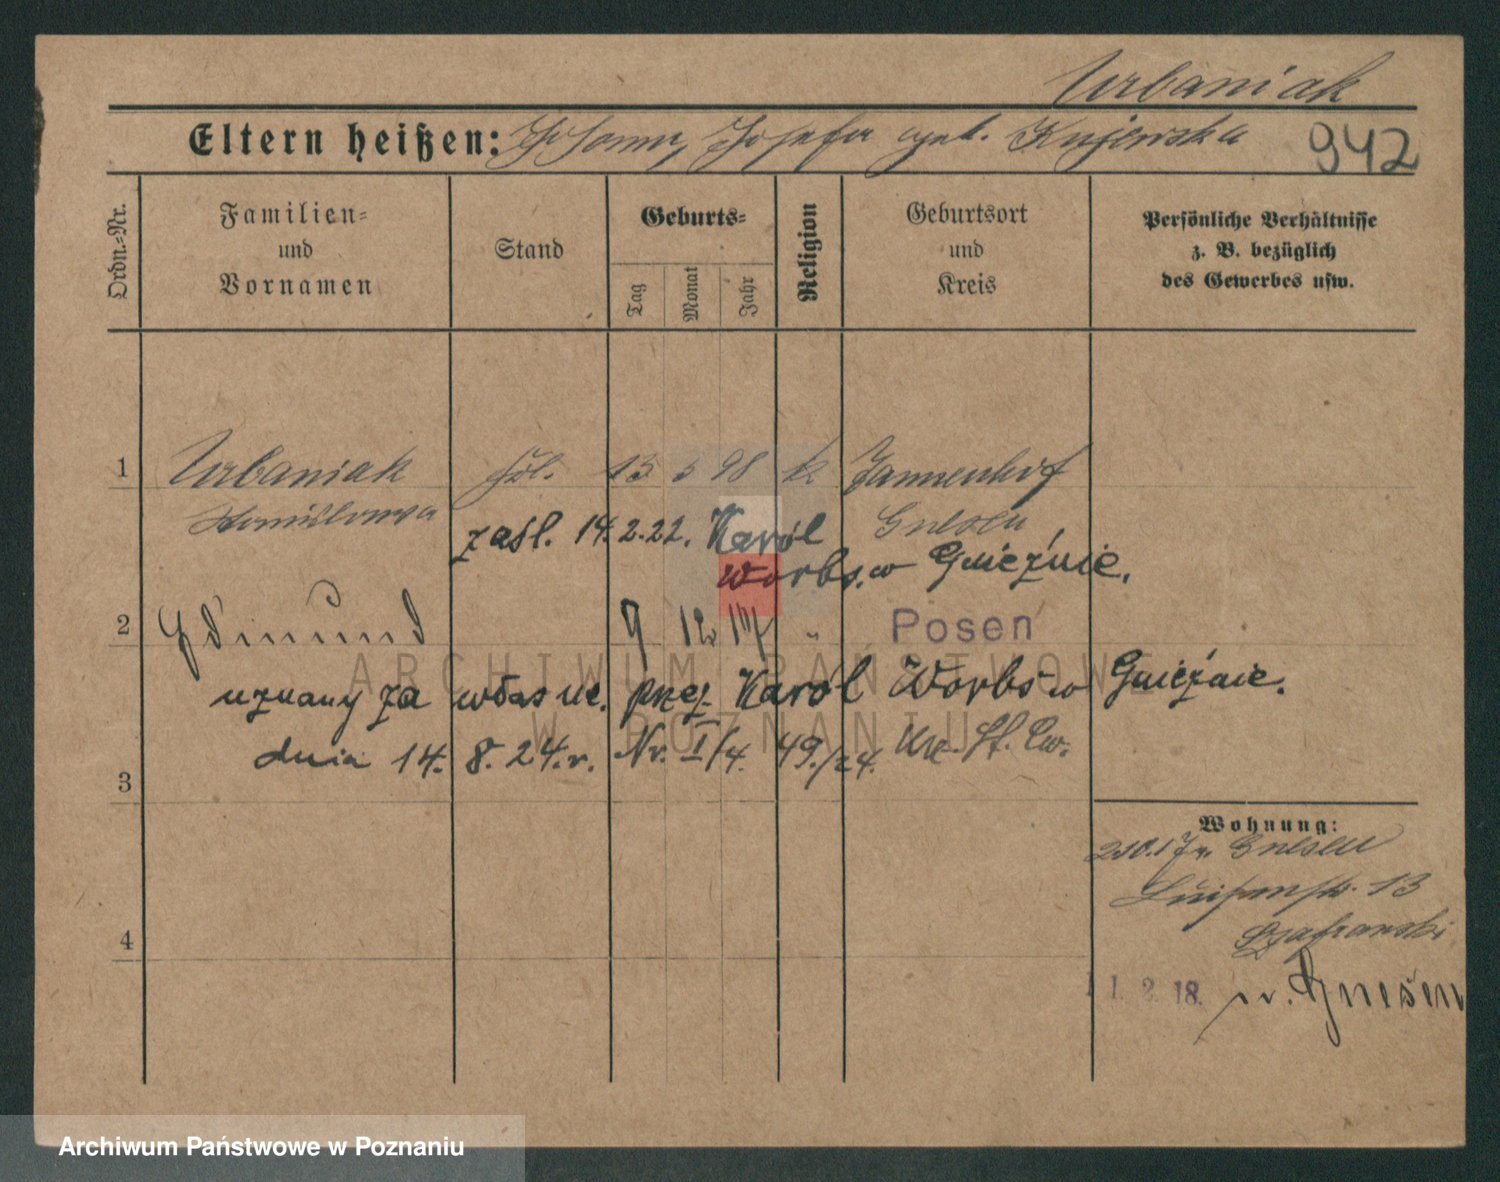 Urbaniak
Eltern heißen: Johann, Josefa geb. Kujewska 942
Ordn.-Nr.
Familien-
und
Vornamen
Stand
Geburts-
Tag
Monat
Jahr
Religion
Geburtsort
und
Kreis
Persönliche Verhältnisse
z. B. bezüglich
des Gewerbes usw.
1 Urbaniak 13 5 98 k Tannenhof
Stanislawa Gnesen
zaśl. 14.2.22. Karól
Worbs. w Gnieźnie.
2 Edmund 9 12 17 " Posen
uznany za własne. przez Karól Worbs w Gnieźnie.
dnia 14. 8. 24. r. Nr. I/4. 49./24.
3
Wohnung:
Gnesen
Luisenstr. 13
Szafranski
4
1. 2. 18. n. Gnesen
ARCHIWUM PAŃSTWOWE
W POZNANIU
Archiwum Państwowe w Poznaniu